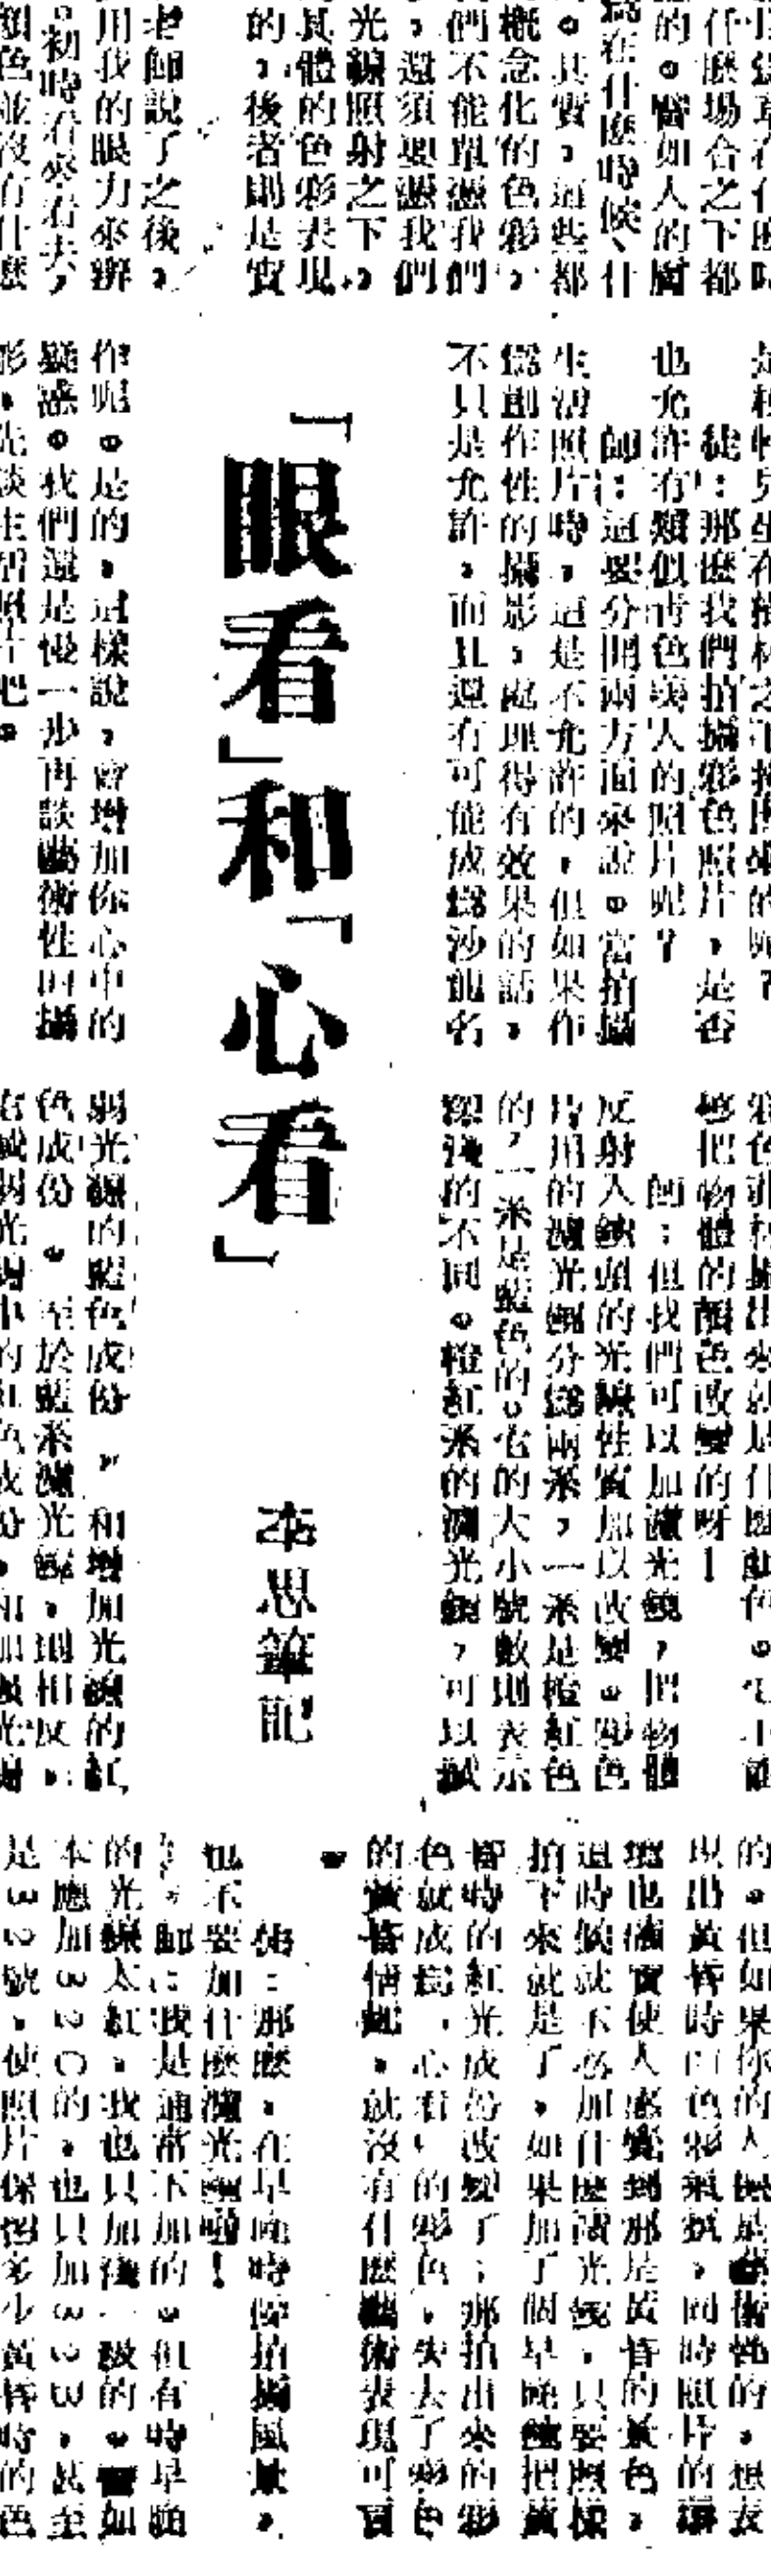 草在什麼時
什麼場合之下都
的。譬如人的膚
為在什麼時候、什
。其實,這些都
概念化的色彩,
們不能單憑我們
,還須要憑我們
光線照射之下,
具體的色彩表現
的,後者則是實
老師說了之後,
用我的眼力來辨
。初時看來看去,
顏色並沒有什麼
徒:那麼我們拍攝彩色照片,是否
也允許有類似青色的人的照片呢?
師:這要分開兩方面來說。當拍攝
生活照片時,這是不允許的,但如果作
為創作性的攝影,處理得有效果的話,
不只是允許,而且還有可能成為沙龍名
「眼看」和「心看」
李思筆記
作呢。是的,這樣說,會增加你心中的
疑惑。我們還是慢一步再談藝術性的攝
影,先談生活照片吧。
夠把物體的顏色改變的呀!
師:但我們可以加濾光鏡,把物體
反射入鏡頭的光線性質加以改變。彩色
片用的濾光鏡分為兩系,一系是橙紅色
的,一系是藍色的。它的大小號數則表示
深淺的不同。橙紅系的濾光鏡,可以減
弱光線的藍色成份,和增加光線的紅
色成份。至於藍系濾光鏡,則相反:
的。但如果你的人像是藝術性的,想表
現出黃昏時的色彩氣氛,同時照片的環
境也確實使人感覺到那是黃昏的黃色,
這時候就不必加什麼濾光鏡,只要照樣
拍下來就是了,如果加了個早晚鏡把黃
昏時的紅光成份改變了;那拍出來的彩
色就成為,心看,的彩色,失去了彩色
的黃昏情調,就沒有什麼藝術表現可言
。
徒:那麼,在早晚時候拍攝風景,
也不要加什麼濾光鏡啦!
師:我是通常不加的。但有時早晚
的光線太紅,我也只加淺一級的。譬如
本應加82C的,也只加82B,甚至
是82號,使照片保留多少黃昏時的色